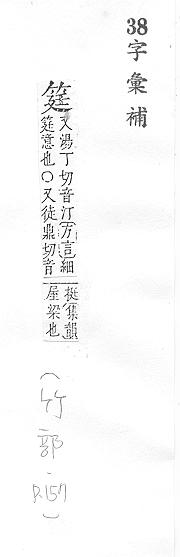 38字彙補
筳
又湯丁切音汀方言細
筳意也○又徒鼎切音
挺集韻
屋梁也
(竹部.P.157)